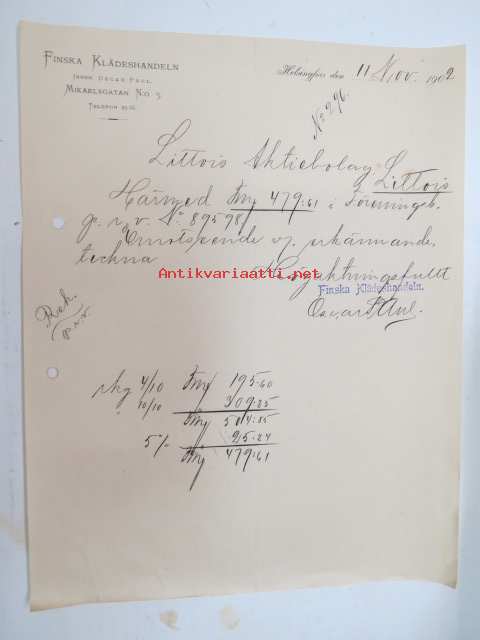 FINSKA KLÄDESHANDELN
INNEH. OSCAR PAUL.
MIKAELSGATAN N:O 3.
TELEFON
Helsingfors den 11 Nov. 1902
No 296.
Littois Aktiebolag, Littois
Härmed Fmy 479:61 i Föreningsb.
p. v. No 89598
Emotseende erkännande,
teckna
Högaktningsfullt
Finska Klädeshandeln.
Oscar Paul.
Antikvariaatti.net
rkg 4/10 Fmy 195.60
" 10/10 309.25
Fmy 504.85
5% 25.24
Fmy 479.61